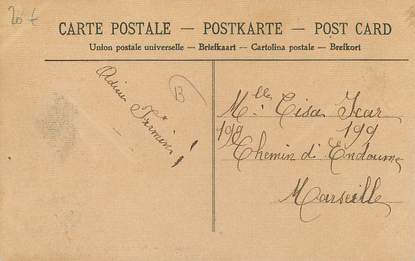 20 f
CARTE POSTALE — POSTKARTE — POST CARD
Union postale universelle — Briefkaart — Cartolina postale — Brefkort
13
Adieu
Firmin !
Melle Cisa Icar
199 199
Chemin d'Endoume
Marseille